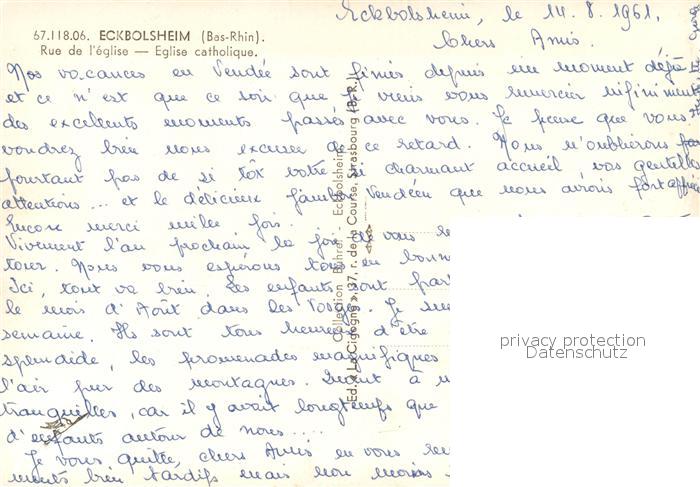 Eckbolsheim, le 14.8.1961.
67.118.06. ECKBOLSHEIM (Bas-Rhin).
Rue de l'église — Eglise catholique.
Chers Amis.
Nos vacances en Vendée sont finies depuis un moment déjà
et ce n'est que ce soir que je viens vous remercier infiniment
des excellents moments passés avec vous. Je pense que vous
voudrez bien nous excuser de ce retard. Nous n'oublierons
pourtant pas de si tôt votre si charmant accueil, vos gentilles
attentions... et le délicieux jambon Vendéen que nous avons fort apprécié
Encore merci mille fois.
Vivement l'an prochain la joie de vous re
tour. Nous vous espérons tous en bonn
Ici, tout va bien. Les enfants sont par
le mois d'Août dans les Vosges. Je
semaine. Ils sont tous heureux d'être
splendide, les promenades magnifiques
l'air pur des montagnes. Quant à n
tranquilles, car il y avait longtemps que
d'enfants autour de nous....
Je vous quitte, chers Amis en vous re
ments bien tardifs mais non moins
Collection Buhrel - Eckbolsheim
Ed. « La Cigogne », 37, r. de la Course, Strasbourg (B.-R.)
privacy protection
Datenschutz